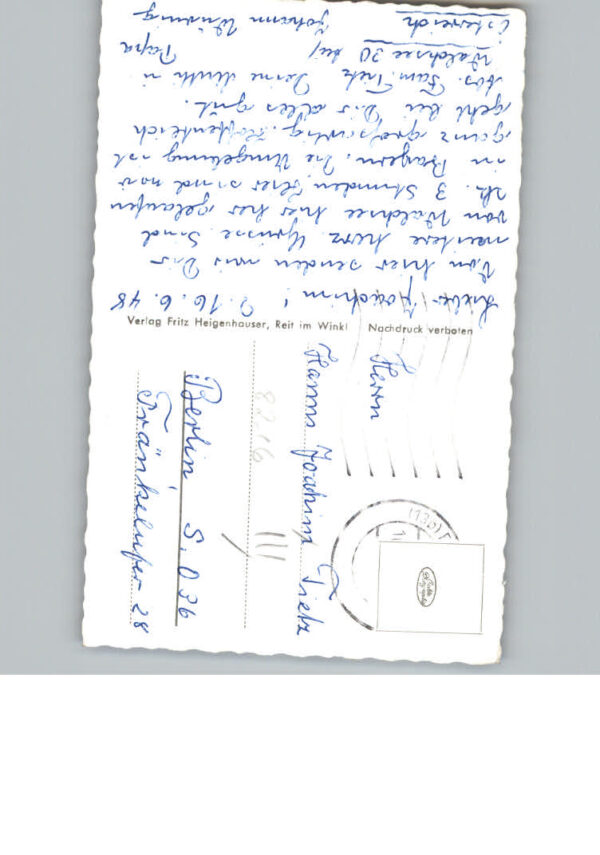 Lieber Joachim! 16.6.48
Von hier senden wir Dir
weitere herz. Grüsse. Sind
von Walchsee hier her gelaufen
3 Stunden. Hier sind wir
in Bayern. Die Umgebung ist
ganz großartig. Hoffentlich
geht bei Dir alles gut.
Abs. Fam. Tietz Deine Mutti u
Walchsee 30 bei Papa
Johann
Österreich
Verlag Fritz Heigenhauser, Reit im Winkl Nachdruck verboten
Herrn
Hanns Joachim Tietz
8216
Berlin S.O 36
Fränkelufer 28
(13b)